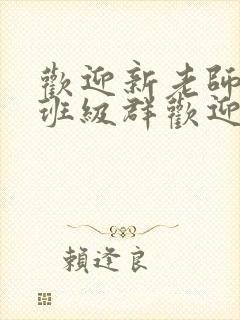 歡迎新老師
班級群歡迎
賴逢良